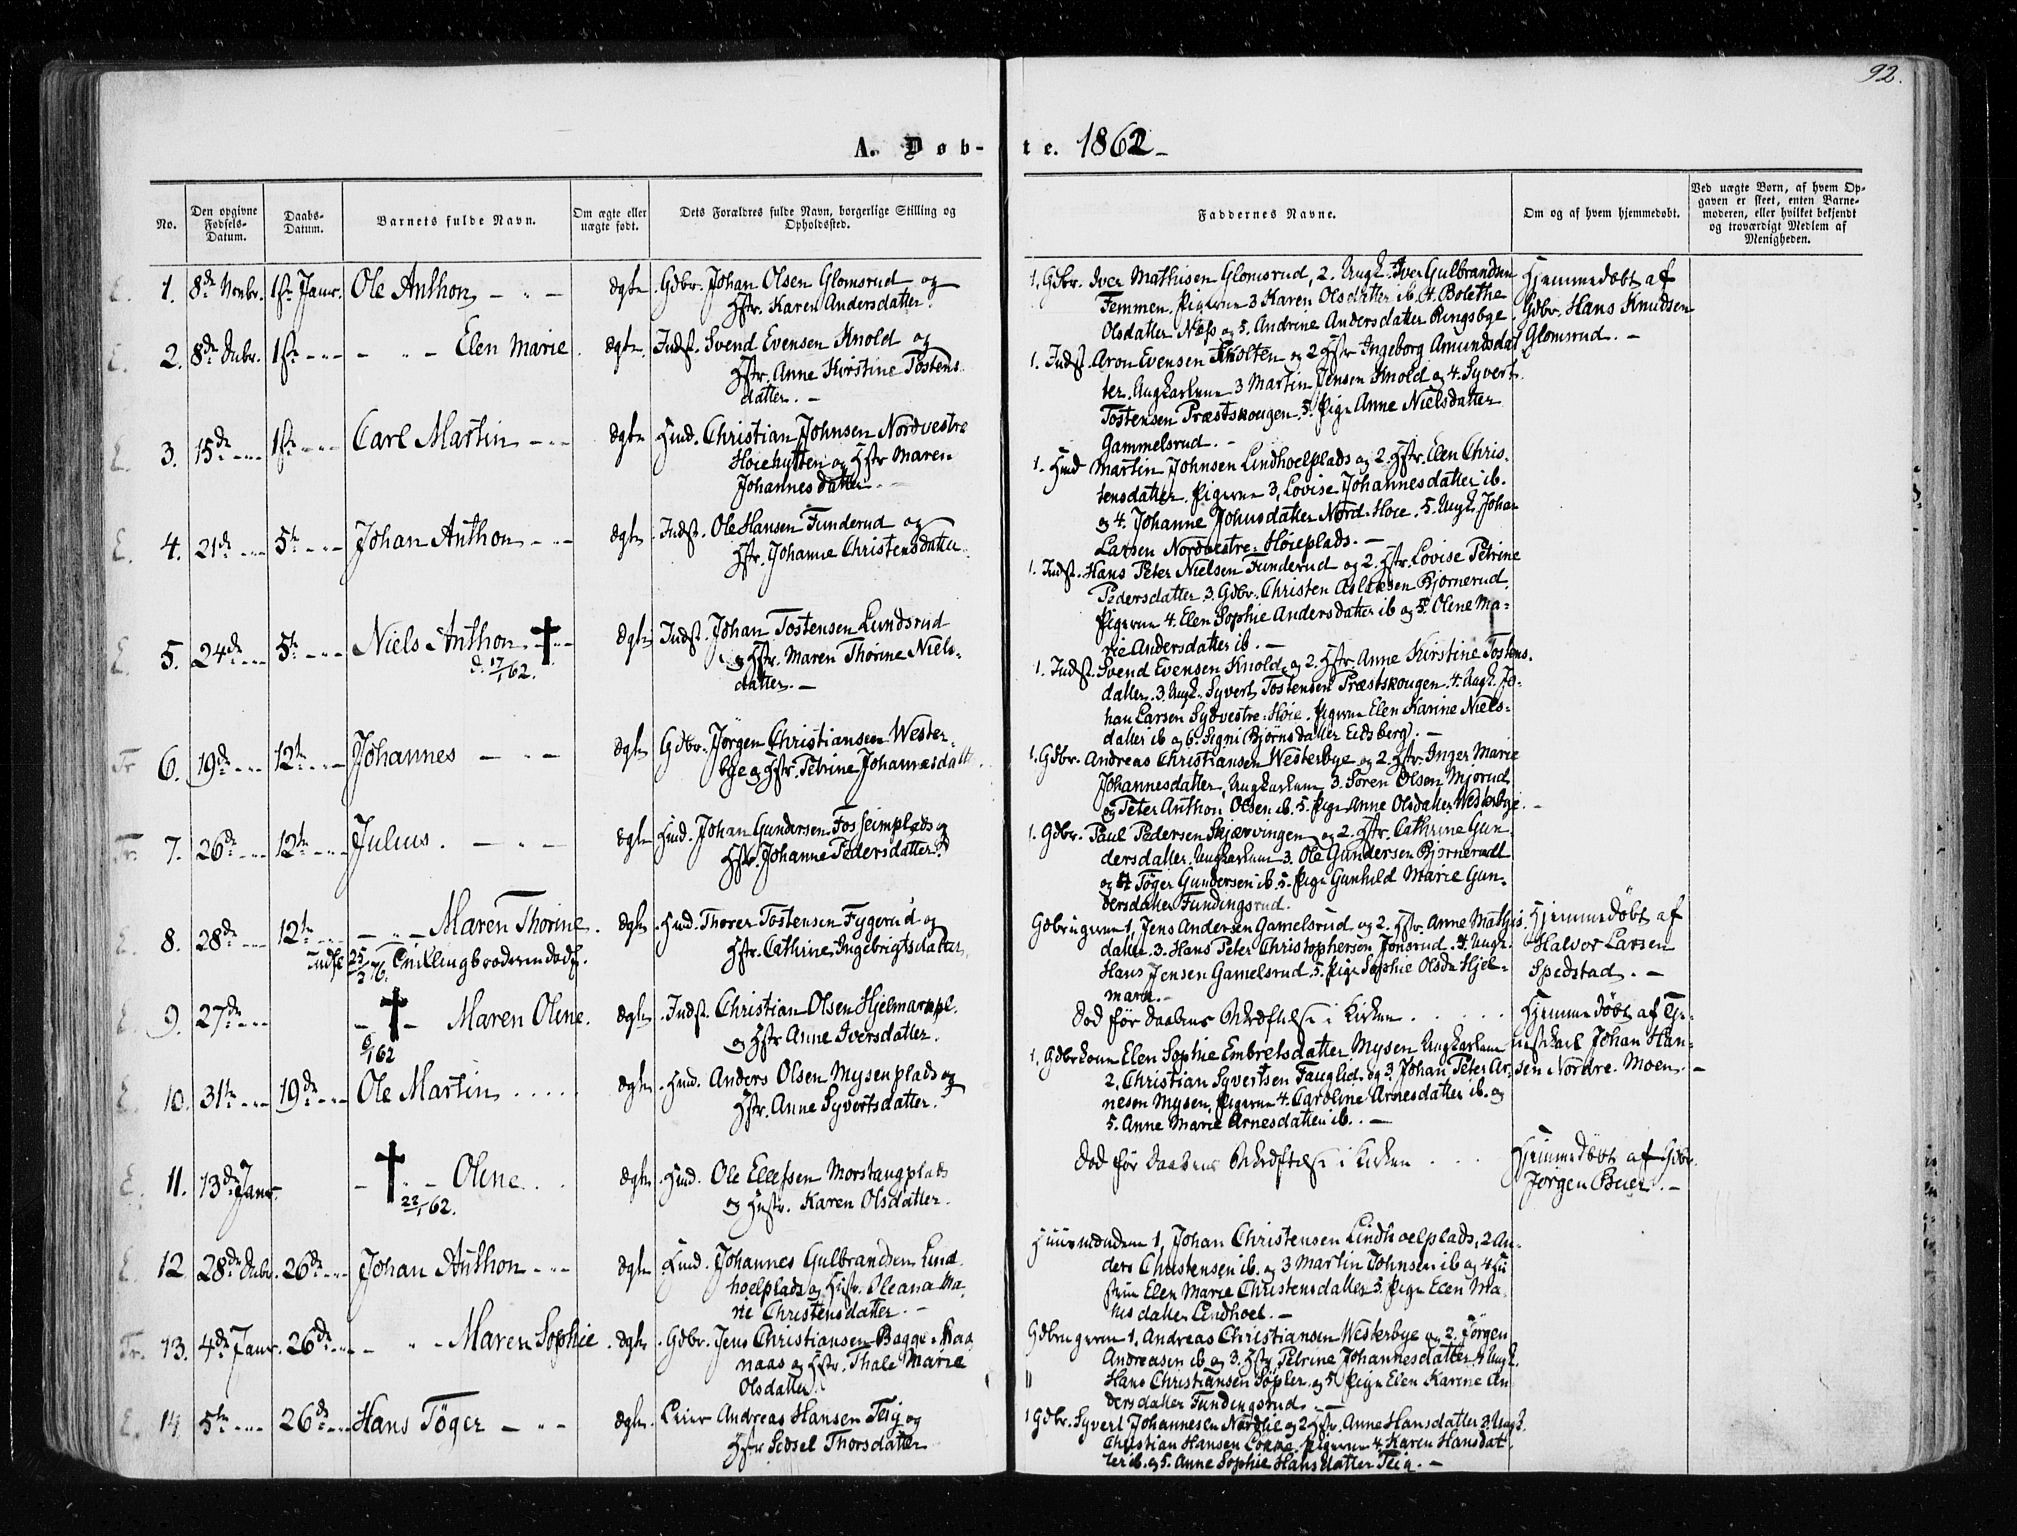 92.
A. Døbte. 1862
No.
Den opgivne Fødsels-Datum.
Daabs-Datum.
Barnets fulde Navn.
Om ægte eller uægte født.
Dets Forældres fulde Navn, borgerlige Stilling og Opholdssted.
Faddernes Navne.
Om og af hvem hjemmedøbt.
Ved uægte Børn, af hvem Opgaven er skeet, enten Barnemoderen, eller hvilket bekjendt og troværdigt Medlem af Menigheden.
E. 1. 8de Novbr. 1ste Janr. Ole Anthon
ægte
Gdbr. Johan Olsen Glomsrud og
Hstr. Karen Andersdatter.
1. Gdbr. Iver Mathisen Glomsrud, 2. Ungk. Iver Gulbrandsen
Femmen. Pigerne 3 Karen Olsdatter ib. 4. Bolethe
Olsdatter Næss og 5. Andrine Andersdatter Ringsbye
Hjemmedøbt af
Gdbr. Hans Knudsen
Glomsrud. -
E. 2. 8de Decbr. 1ste - Elen Marie
ægte
Indst. Svend Evensen Knold og
Hstr. Anne Kirstine Tostens-
datter. -
1. Indst. Aron Evensen Skolten og 2 Hstr Ingeborg Amundsdat
ter. Ungkarlene 3 Martin Jensen Knold og 4. Syvert
Tostensen Præstskougen. 5. Pige Anne Nielsdatter
Gammelsrud. -
E. 3. 15de - 1ste - Carl Martin
ægte
Hmd. Christian Johnsen Nordvestre
Høiehytten og Hstr Maren
Johannesdatter.
1. Hmd Martin Johnsen Lindhoelplads og 2. Hstr. Elen Chris-
tensdatter. Pigerne 3, Lovise Johannesdatter ib.
og 4. Johanne Johnsdatter Nord-Høie. 5. Ungk. Johan
Larsen Nordvestre-Høieplads. -
E. 4. 21de - 5te - Johan Anthon
ægte
Indst. Ole Hansen Funderud og
Hstr. Johanne Christensdatter
1. Indst. Hans Peter Nielsen Funderud og 2. Hstr. Lovise Petrine
Pedersdatter 3. Gdbr. Christen Aslaksen Bjørnerud.
Pigerne 4. Elen Sophie Andersdatter ib og 5. Olene Ma-
rie Andersdatter ib. -
E. 5. 24de - 5te - Niels Anthon †
d. 17/1 62.
ægte
Indst. Johan Tostensen Lundsrud
og Hstr. Maren Thorine Niels-
datter. -
1. Indst. Svend Evensen Knold og 2. Hstr. Anne Kirstine Tostens-
datter. 3. Ungk. Syvert Tostensen Præstskougen. 4. Ungk. Jo-
han Larsen Sydvestre-Høie. Pigerne Elen Karine Niels-
datter ib og 6. Signi Bjørnsdatter Eidsberg). -
Fr. 6. 19de - 12te - Johannes
ægte
Gdbr. Jørgen Christiansen Wester-
bye og Hstr. Petrine Johannesdatt.
1. Gdbr. Andreas Christiansen Westerbye og 2. Hstr. Inger Marie
Johannesdatter, Ungkarlene 3. Søren Olsen Mjørud
og Peter Anthon Olsen ib. 5. Pige Anne Olsdatter Westerbye. -
Fr. 7. 26de - 12te - Julius.
ægte
Hmd. Johan Gundersen Fosseimplads og
Hstr. Johanne Pedersdatter.
1. Gdbr. Paul Pedersen Skjærvingen og 2. Hstr. Cathrine Gun-
dersdatter. Ungkarlene 3. Ole Gundersen Bjørnerudt
og 4 Tøger Gundersen ib. 5. Pige Gunhild Marie Gun-
dersdatter Fundingsrud.
E. 8. 28de - 12te - Maren Thorine.
Tvillingbroderen dødf.
ægte
Hmd. Thorer Tostensen Fygerud og
Hstr. Cathrine Ingebrigtsdatter.
Gdbrugerne 1, Jens Andersen Gamelsrud og 2. Hstr. Anne Mathis-
datter. 3. Hans Peter Christophersen Jonsrud. 4. Ungk.
Hans Jensen Gamelsrud. 5. Pige Sophie Olsdr Hjel-
mark. -
Hjemmedøbt af
Halvor Larsen
Spedstad. -
E. 9. 27de - † Maren Olene.
6/1 62
ægte
Indst. Christian Olsen Hjelmarkpl.
og Hstr Anne Iversdatter.
Død før Daabens Bekræftelse i Kirken
Hjemmedøbt af Tje-
nestkarl Johan Han-
sen Nordre-Moen. -
E. 10. 31te - 19de - Ole Martin
ægte
Hmd. Anders Olsen Mysenplads og
Hstr. Anne Syvertsdatter.
1. Gdbrkone Elen Sophie Embretsdatter Mysen Ungkarlene
2. Christian Syvertsen Fauglid og 3. Johan Peter Ar-
nesen Mysen. Pigerne 4. Caroline Arnesdatter ib. og
5. Anne Marie Arnesdatter ib. -
E. 11. 13de Janr. - † Olene
22/1 62.
ægte
Hmd. Ole Ellefsen Morstangplads
og Hustr. Karen Olsdatter.
Død før Daabens Bekræftelse i Kirken
Hjemmedøbt af Gdbr.
Jørgen Beier. -
E. 12. 28de Decbr. 26de - Johan Anthon
ægte
Hmd. Johannes Gulbrandsen Lind-
hoelplads og Hustr. Oleana Ma-
rie Christensdatter. -
Huusmændene 1, Johan Christensen Lindhoelplads, 2 An-
ders Christensen ib. og 3 Martin Johnsen ib og 4 Hu
struen Elen Marie Christensdatter. 5. Pige Elen Ma-
thisdatter Lindhoel. -
Fr. 13. 4de Janr. 26de - Maren Sophie.
ægte
Gdbr. Jens Christiansen Bagge-Haa
naas og Hstr. Thale Marie
Olsdatter.
Gdbrugerne 1. Andreas Christiansen Westerbye og 2. Jørgen
Andreasen ib og 3. Hstr. Petrine Johannesdatter 4 Ungk.
Hans Christiansen Søpler og 5. Pige Elen Karine An-
dersdatter Fundingsrud. -
E. 14. 5te - 26de - Hans Tøger
ægte
Leier Andreas Hansen Teig og
Hstr Sidsel Thorsdatter
1 Gdbr. Syvert Johannesen Nordlie og 2 Hstr. Anne Hansdatter 3. Ungk.
Christian Hansen Pigerne 4 Karen Hansdat-
ter ib. og 5. Anne Sophie Hansdatter Teig. -